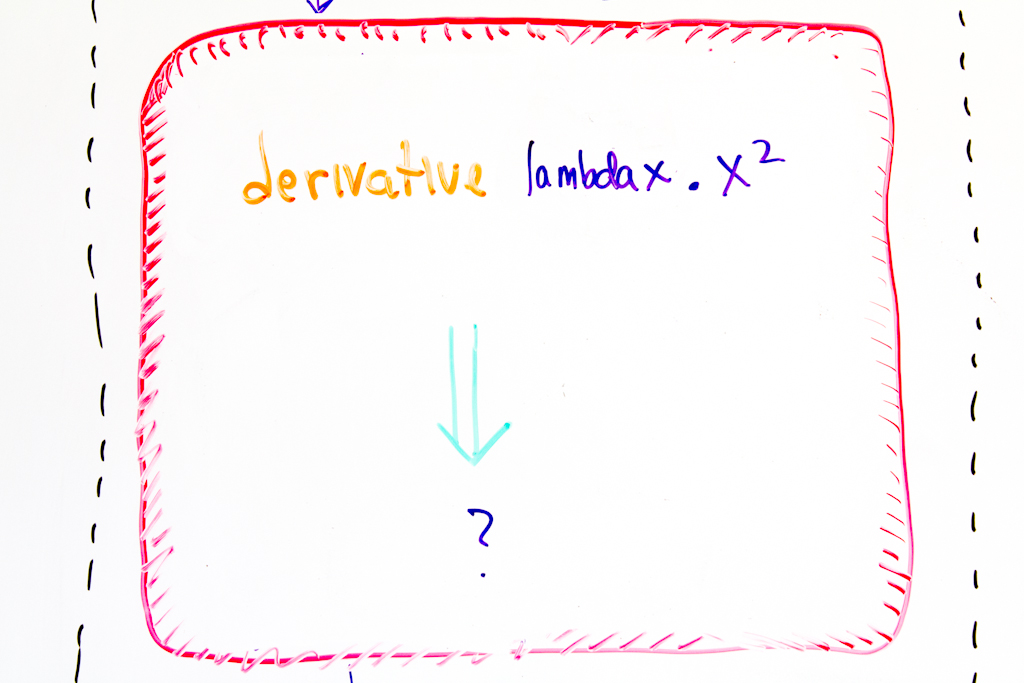 derivative lambda x . x²
?